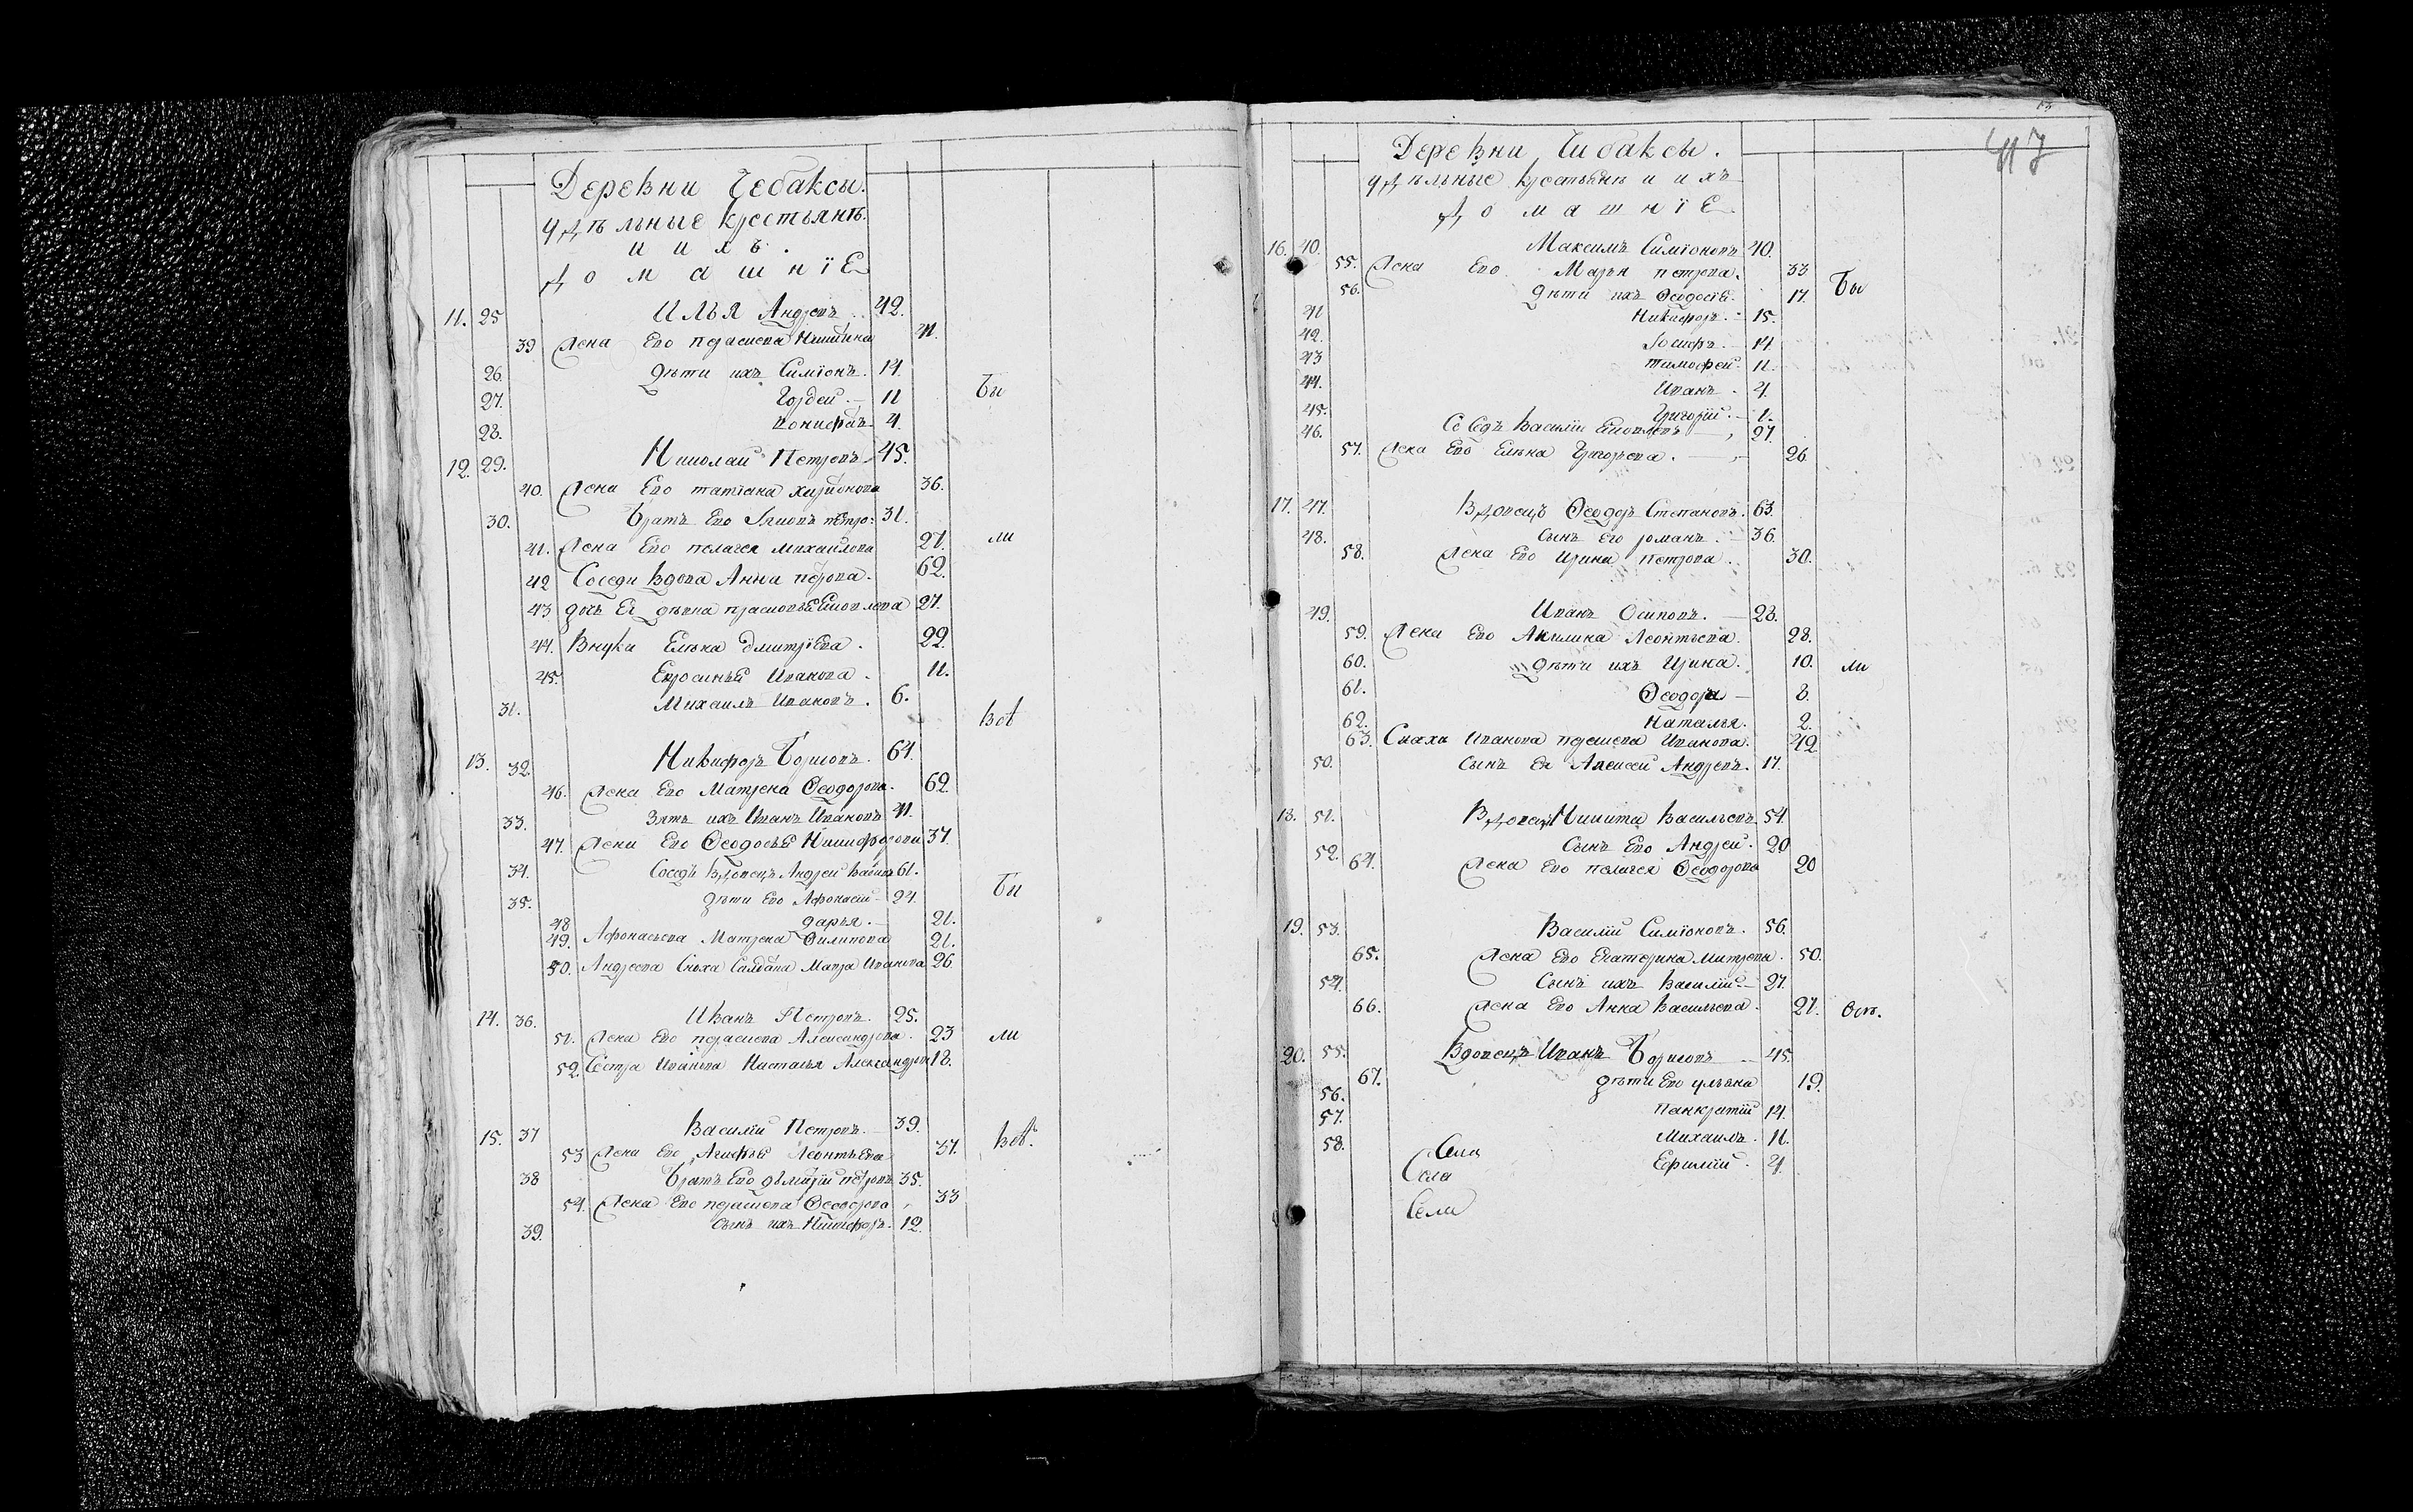 Деревни Чебаксы.
удѣльные крестьянѣ.
и ихъ.
домашніе
11. 25 Илья Андреевъ .. 42.
39 Жена Его парасцева Никитина 41.
26. дѣти ихъ Симіонъ. 14.
27. Гордеи. — 11 Бы
28. 4.
12. 29. Николаи Петровъ 45.
40. Жена Его татіана 36.
30. Братъ Его петро: 31.
41. Жена Его пелагея михаилова 27. ли
42 Соседи вдова Анна петрова. 62.
43 дочь Ея девка 27.
44. Внука Елена дмитріева. 22.
45. Ефросинья Иванова. 11.
31. Михаилъ Ивановъ. 6.
всѣ
13. 32. Никифоръ Борисовъ. 64.
46. Жена Его Матрена Ѳеодорова. 62
33. Зять ихъ Иванъ Ивановъ 41.
47. Жена Его Ѳеодосья Никифорова 37
34. Соседъ вдовецъ Андреи 61.
35. дѣти Его Афонасіи 24. Бы
48 дарья. — 21.
49. Афонасьева Матрена Филипова 21.
50. Андреева Сноха Мавра Иванова 26
14. 36. Иванъ Петровъ. 25.
51. Жена Его парасцева Александрова. 23 ли
52. Сестра Иванова Настасья 18.
15. 37 Василіи Петровъ. — 39.
53 Жена Его Агафья Леонтьева 37. всѣ.
38 Братъ Его дѣмитріи петровъ 35.
54. Жена Его парасцева Ѳеодорова 33
39. Сынъ ихъ Никифоръ. 12.
47
Деревни Чибаксы.
удѣльные крестьянѣ и ихъ
домашніе
16. 40. Максимъ Симіоновъ 40.
55. Жена Его Марья петрова. 33
56. дѣти ихъ Ѳеодосія. 17. Бы
41 Никифоръ. - 15.
42. Іосифъ. — 14
43 тимофеи. 11.
44. Иванъ. 4.
45. Григоріи. — 1.
46. Соседъ Василіи 27.
57. Жена Его Елена Григорьева. — 26
17. 47. Вдовецъ Ѳеодоръ Степановъ. 63.
48. Сынъ Его романъ. — 36.
58. Жена Его Ирина петрова. 30.
49. Иванъ Осиповъ. — 28.
59. Жена Его Акилина Леонтьева. 28.
60. дѣти ихъ Ирина. 10. ли
61. Ѳеодора — 8.
62. Наталья. 2.
63. Сноха Иванова парасцева Иванова. 42
50. Сынъ Ея Алексеи Андреевъ. 17.
18. 51. Вдовецъ Никита Васильевъ 54
52. Сынъ Его Андреи. 20
64. Жена Его пелагея Ѳеодорова 20
19. 53. Василіи Симіоновъ. 56.
65. Жена Его Екатерина Митрева. 50.
54. Сынъ ихъ Василіи — 27.
66. Жена Его Анна Васильева. 27.
20. 55. Вдовецъ Иванъ Борисовъ — 45.
67. дѣти Его ульяна 19.
56. панкратіи 14.
57. Михаилъ. 11.
58. Ефиміи. 4.
Села
Села
Села